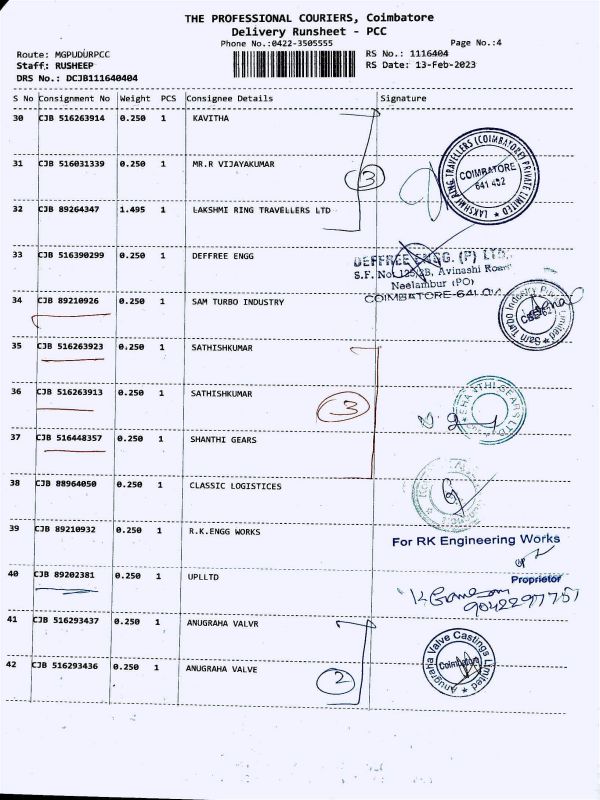 THE PROFESSIONAL COURIERS, Coimbatore
Delivery Runsheet - PCC
Phone No.:0422-3505555
Page No.:4
Route: MGPUDURPCC
RS No.: 1116404
Staff: RUSHEEP
RS Date: 13-Feb-2023
DRS No.: DCJB111640404
S No Consignment No Weight PCS Consignee Details Signature
30 CJB 516263914 0.250 1 KAVITHA
31 CJB 516031339 0.250 1 MR.R VIJAYAKUMAR
3
LAKSHMI RING TRAVELLERS (COIMBATORE) PRIVATE LIMITED
COIMBATORE
641 402
32 CJB 89264347 1.495 1 LAKSHMI RING TRAVELLERS LTD
33 CJB 516390299 0.250 1 DEFFREE ENGG
DEFFREE ENGG. (P) LTD.,
S.F. No. Avinashi Road
Neelambur (PO)
COIMBATORE
34 CJB 89210926 0.250 1 SAM TURBO INDUSTRY
Sam Turbo Industry Limited
35 CJB 516263923 0.250 1 SATHISHKUMAR
36 CJB 516263913 0.250 1 SATHISHKUMAR
3
37 CJB 516448357 0.250 1 SHANTHI GEARS
SHANTHI GEARS LTD
38 CJB 88964050 0.250 1 CLASSIC LOGISTICES
39 CJB 89210932 0.250 1 R.K.ENGG WORKS
For RK Engineering Works
Proprietor
40 CJB 89202381 0.250 1 UPLLTD
41 CJB 516293437 0.250 1 ANUGRAHA VALVR
42 CJB 516293436 0.250 1 ANUGRAHA VALVE
2
Anugraha Valve Castings Limited
Coimbatore